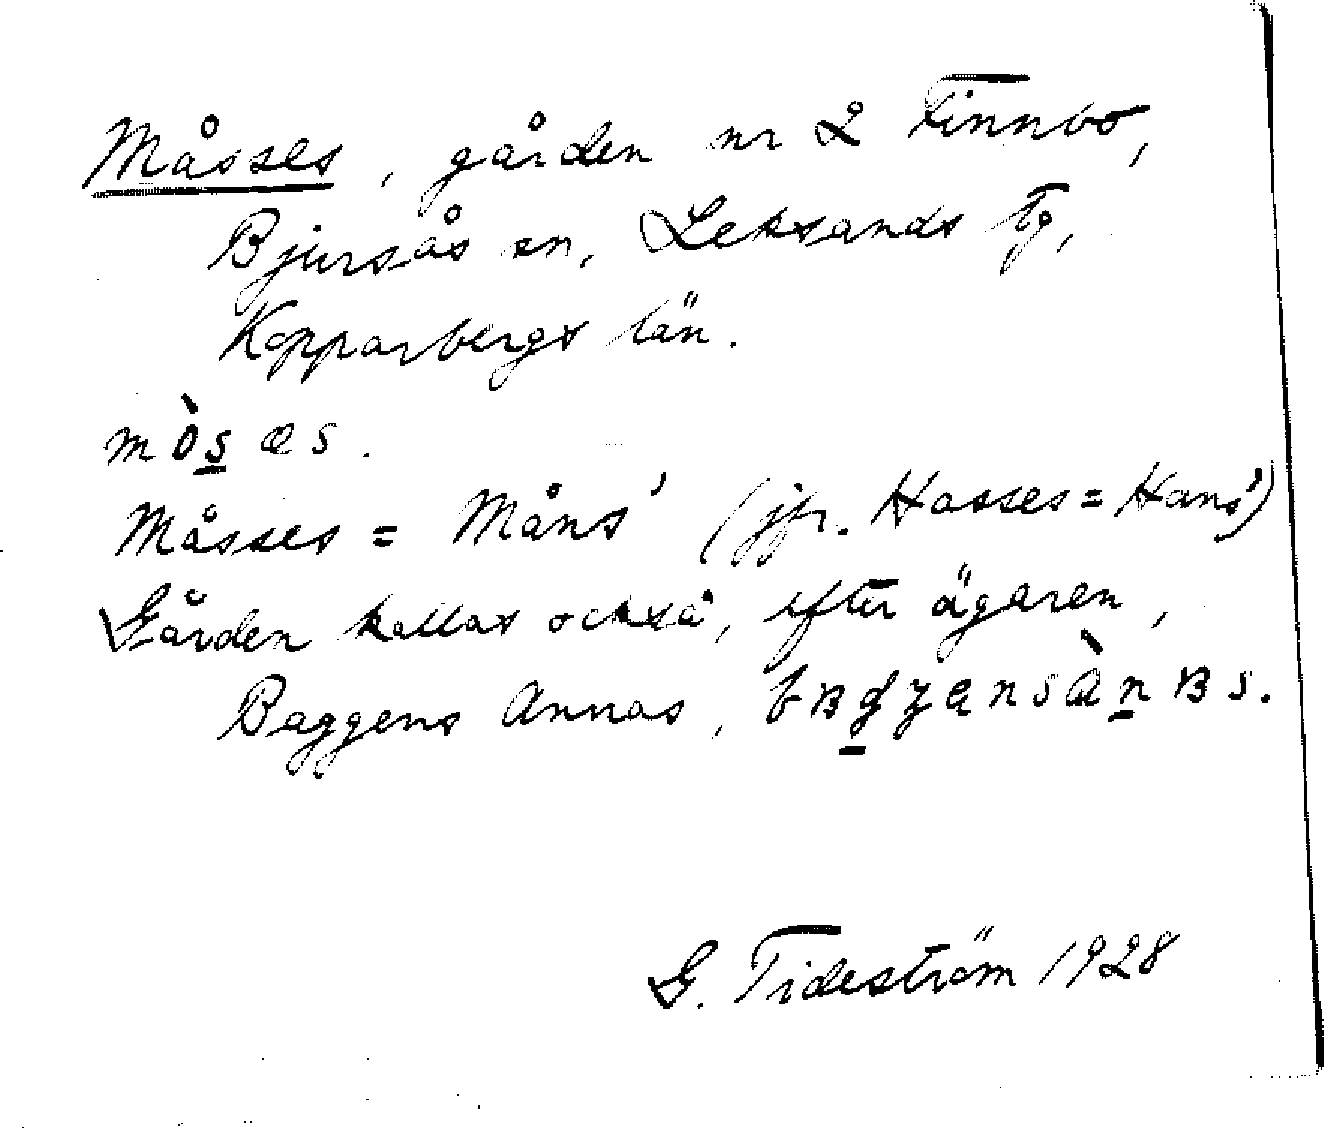 Måsses, gården nr 2 Finnbo,
Bjursås sn, Leksands tg,
Kopparbergs län.
mòs̲æs.
Måsses = Måns' (jfr. Hasses = Hans')
Gården kallas också, efter ägaren,
Baggens Annas,
G. Tideström 1928